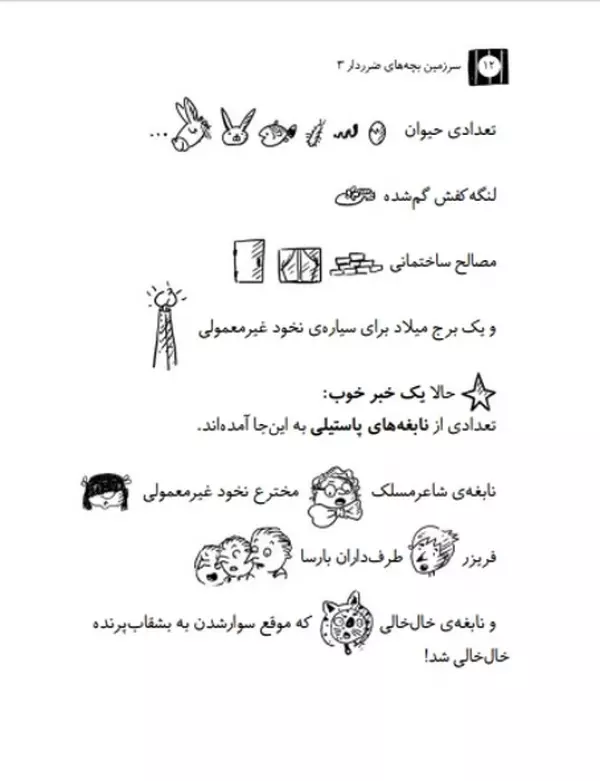 ۱۲ سرزمین بچه‌های ضرردار ۳
تعدادی حیوان ...
لنگه کفش گم‌شده
مصالح ساختمانی
و یک برج میلاد برای سیاره‌ی نخود غیرمعمولی
حالا یک خبر خوب:
تعدادی از نابغه‌های پاستیلی به این‌جا آمده‌اند.
نابغه‌ی شاعرمسلک مخترع نخود غیرمعمولی
فریزر طرف‌داران بارسا
و نابغه‌ی خال‌خالی که موقع سوارشدن به بشقاب‌پرنده
خال‌خالی شد!